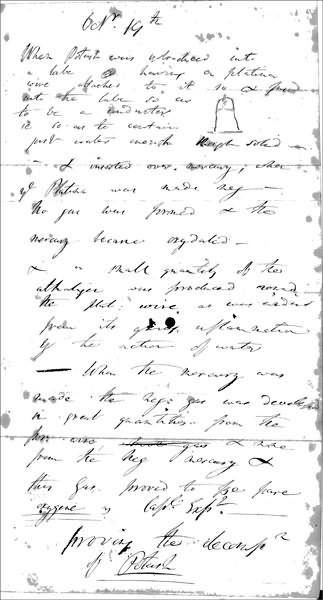 Octr. 19th
When Potash was introduced into
a tube having a platina
wire attached to it so & fused
into the tube so as
to be a conductor
i.e. so as to contain
just water enough though solid —
— & inserted over mercury, when
ye Platina was made neg —
No gas was formed & the
mercury became oxydated —
& a small quantity of the
alkaligen was produced round
the plat: wire as was evident
from its quick inflammation
by the action of water
— When the mercury was
made the neg: gas was developed
in great quantities from the
pos: wire & none
from the neg mercury &
this gas proved to be pure
oxygene — Capl. Expt.
proving the decompn
of Potash